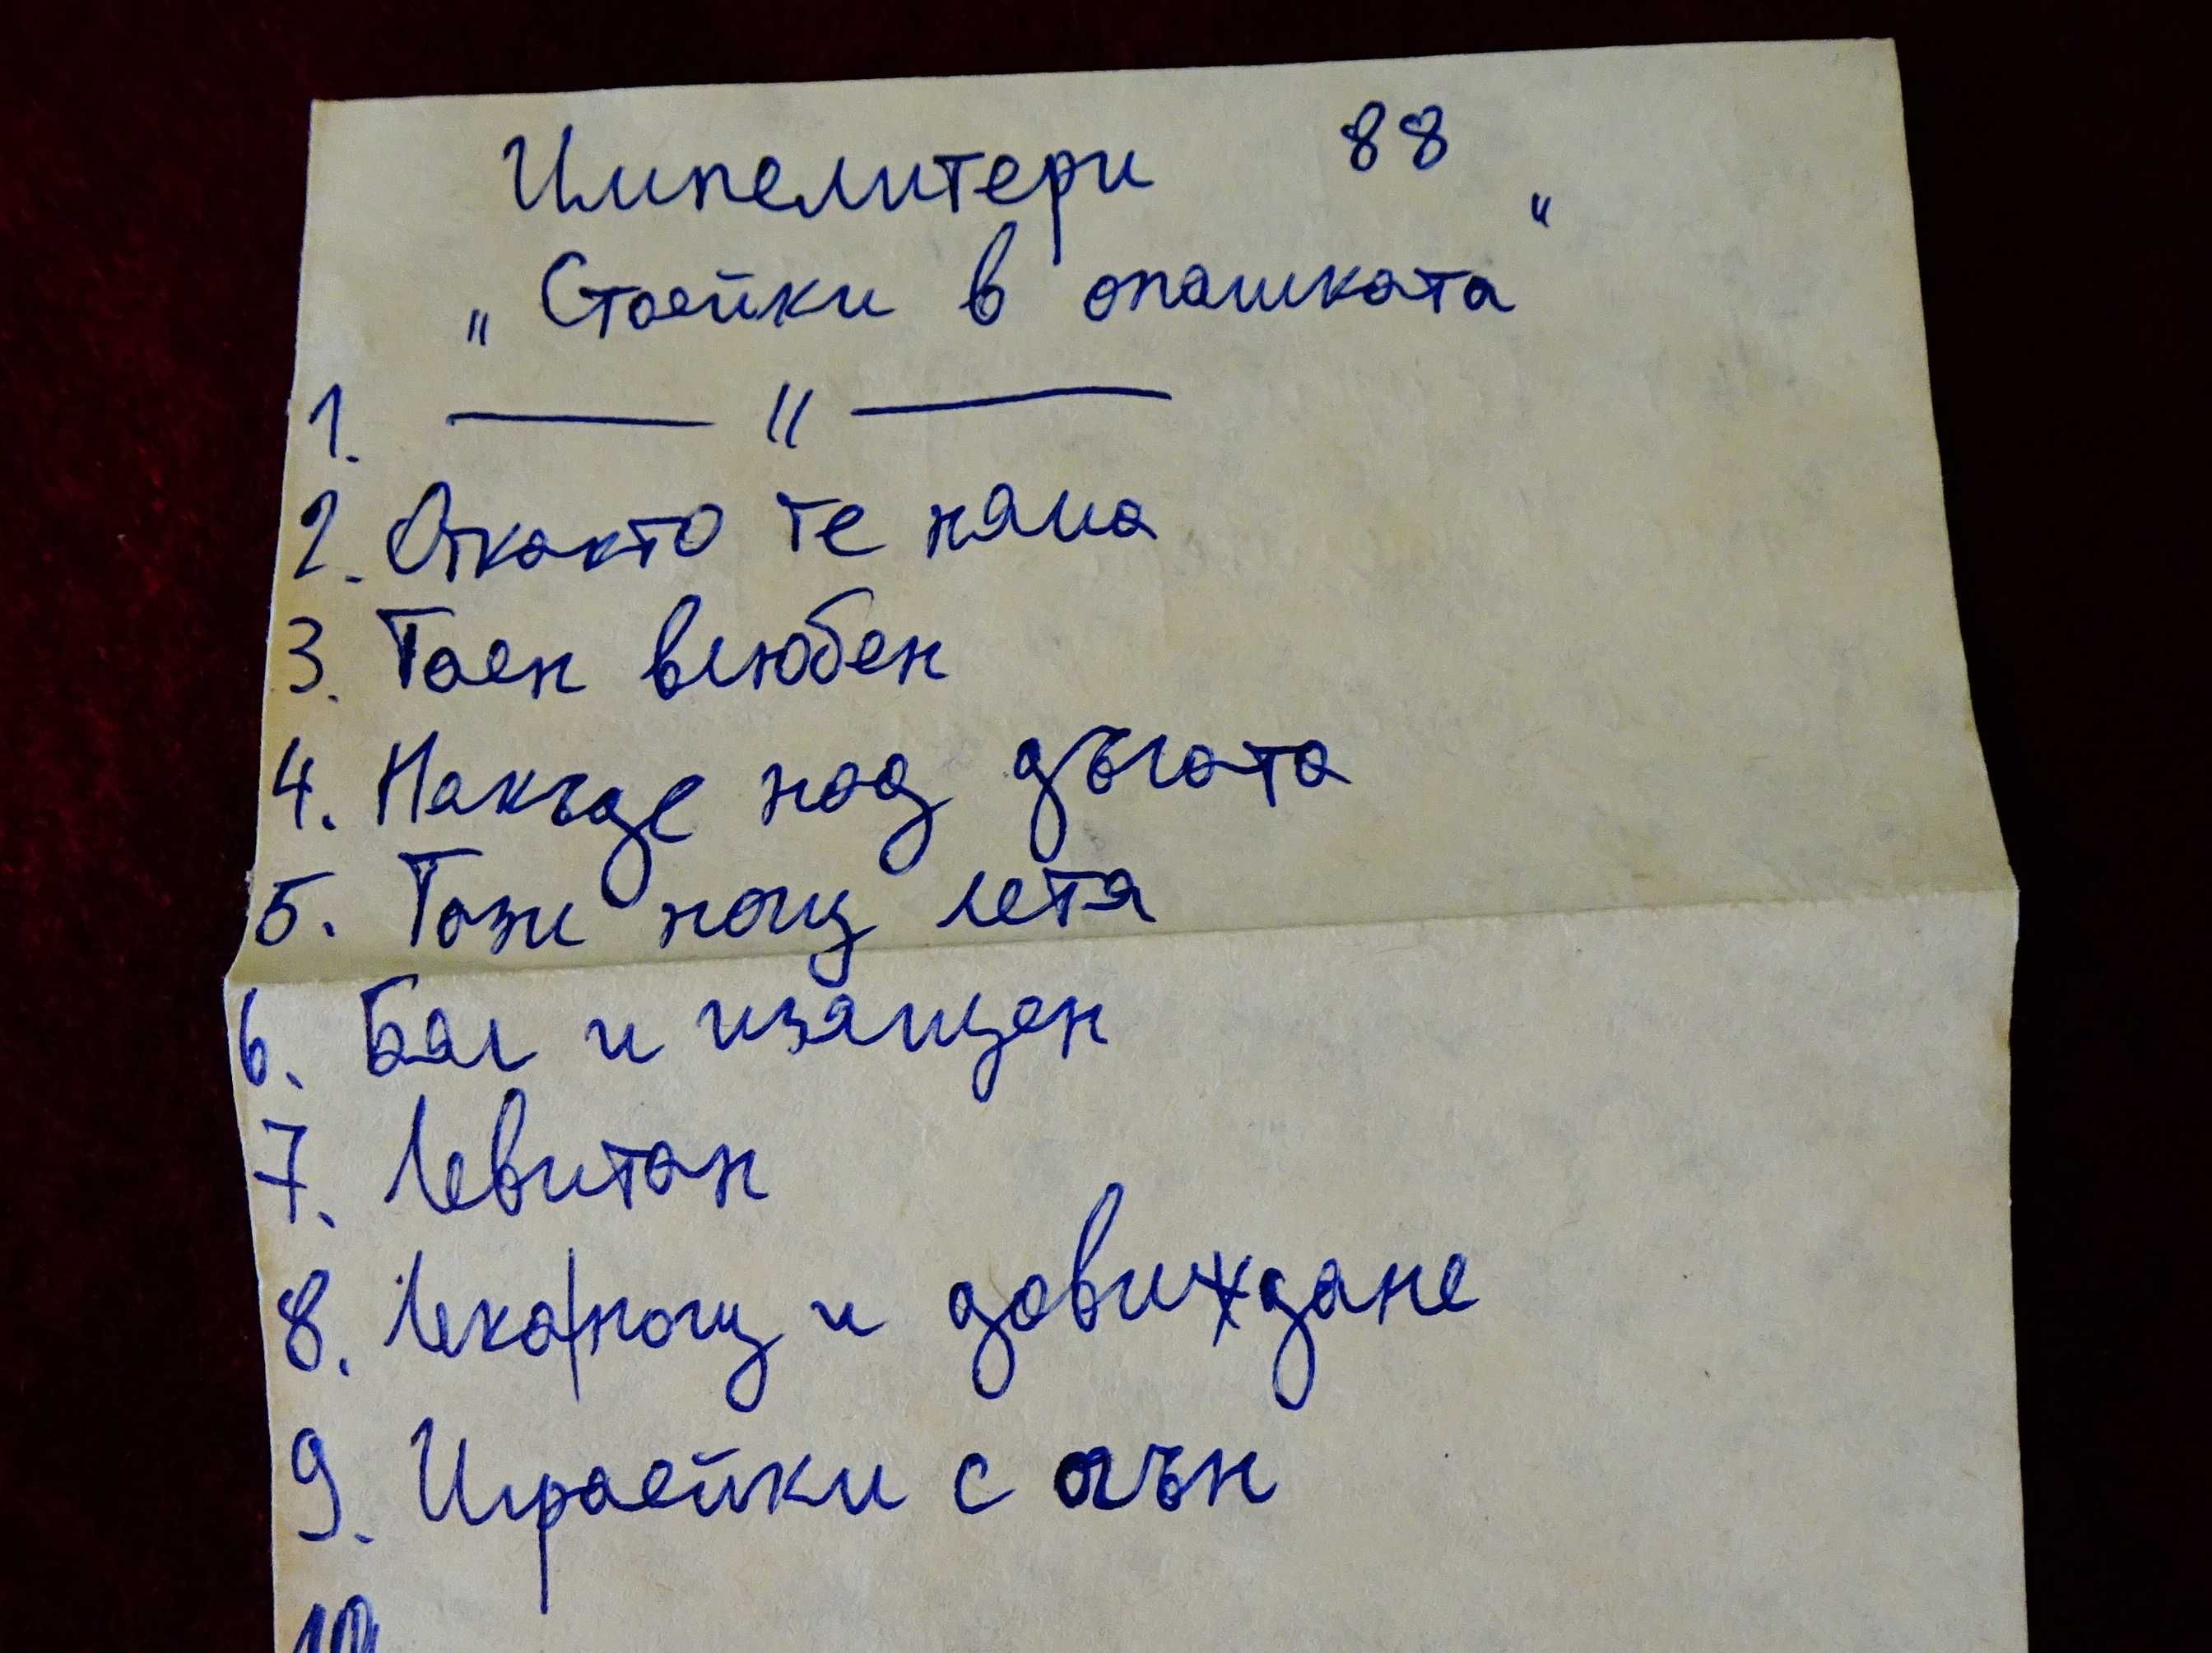 Импелитери 88
„Стоейки в опашката“
1. —— " ——
2. Откакто те няма
3. Таен влюбен
4. Накъде над дъгата
5. Тази нощ летя
6. Бял и изящен
7. Левитан
8. Лека|нощ и довиждане
9. Играейки с огън
10